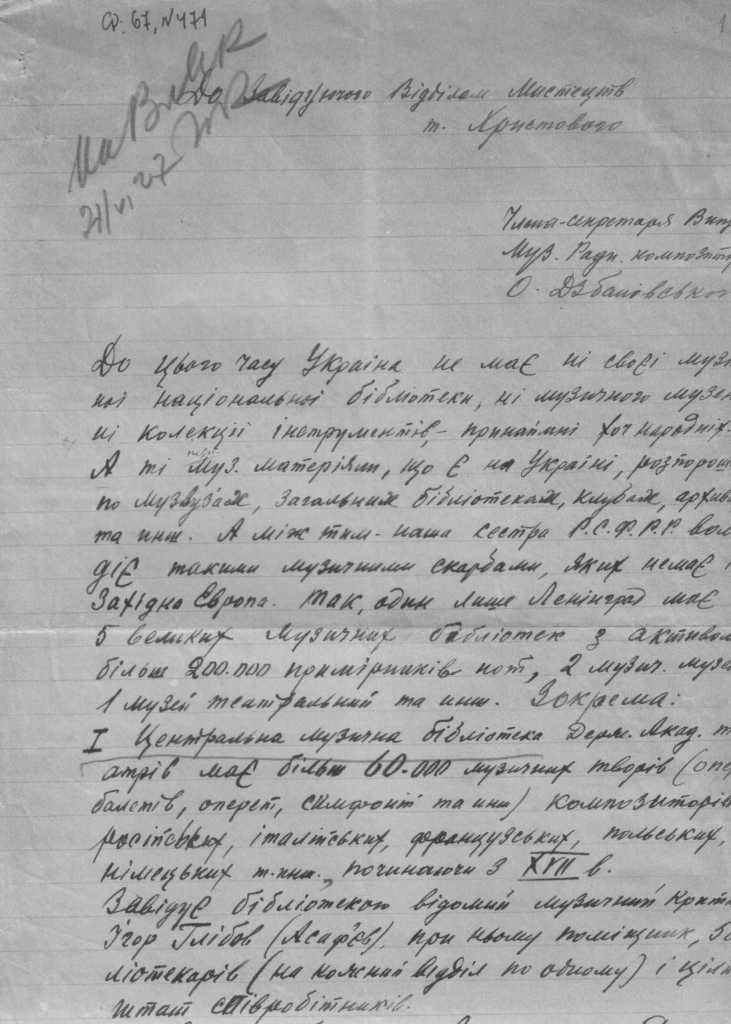 Ф. 67, № 471
1
21/VI 27
До Завідуючого Відділом Мистецтв
т. Христового
Члена-секретаря Вищ
Муз. Ради композит
О. Дзбановськог
До цього часу Україна не має ні своєї музи
ної національної бібліотеки, ні музичного музею
ні колекції інструментів – принаймні хоч народніх.
А ті муз. матеріяли, що є на Україні, розпорош
по музвузах, загальних бібліотеках, клубах, архів
та инш. А між тим – наша сестра Р.С.Ф.Р.Р. воло
діє такими музичними скарбами, яких немає і
Західна Европа. Так, один лише Ленінград має
5 великих музичних бібліотек з активом
більш 200.000 примірників нот, 2 музич. музе
1 музей театральний та инш. Зокрема:
I Центральна музична бібліотека Держ. Акад. т
атрів має більш 60.000 музичних творів (опе
балетів, оперет, симфоній та инш) композиторів
російських, італійських, французських, польських,
німецьких т. инш., починаючи з XVII в.
Завідує бібліотекою відомий музичний крити
Ігор Глібов (Асаф'єв), при ньому поміщник, 5 б
ліотекарів (на кожний відділ по одному) і ціли
штат співробітників.